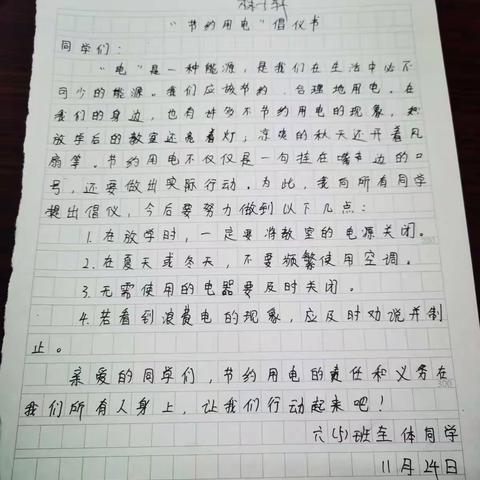 "节约用电"倡仪书
同学们：
"电"是一种能源，是我们在生活中必不
可少的能源。我们应该节约、合理地用电。在
我们的身边，也有许多不节约用电的现象，如
放学后的教室还亮着灯，凉爽的秋天还开着风
扇等。节约用电不仅仅是一句挂在嘴边的口
号，还要做出实际行动。为此，我向所有同学
提出倡仪，今后要努力做到以下几点：
1.在放学时，一定要将教室的电源关闭。
2.在夏天或冬天，不要频繁使用空调。
3.无需使用的电器要及时关闭。
4.若看到浪费电的现象，应及时劝说并制
止。
亲爱的同学们，节约用电的责任和义务在
300
我们所有人身上，让我们行动起来吧！
六(5)班全体同学
11月24日